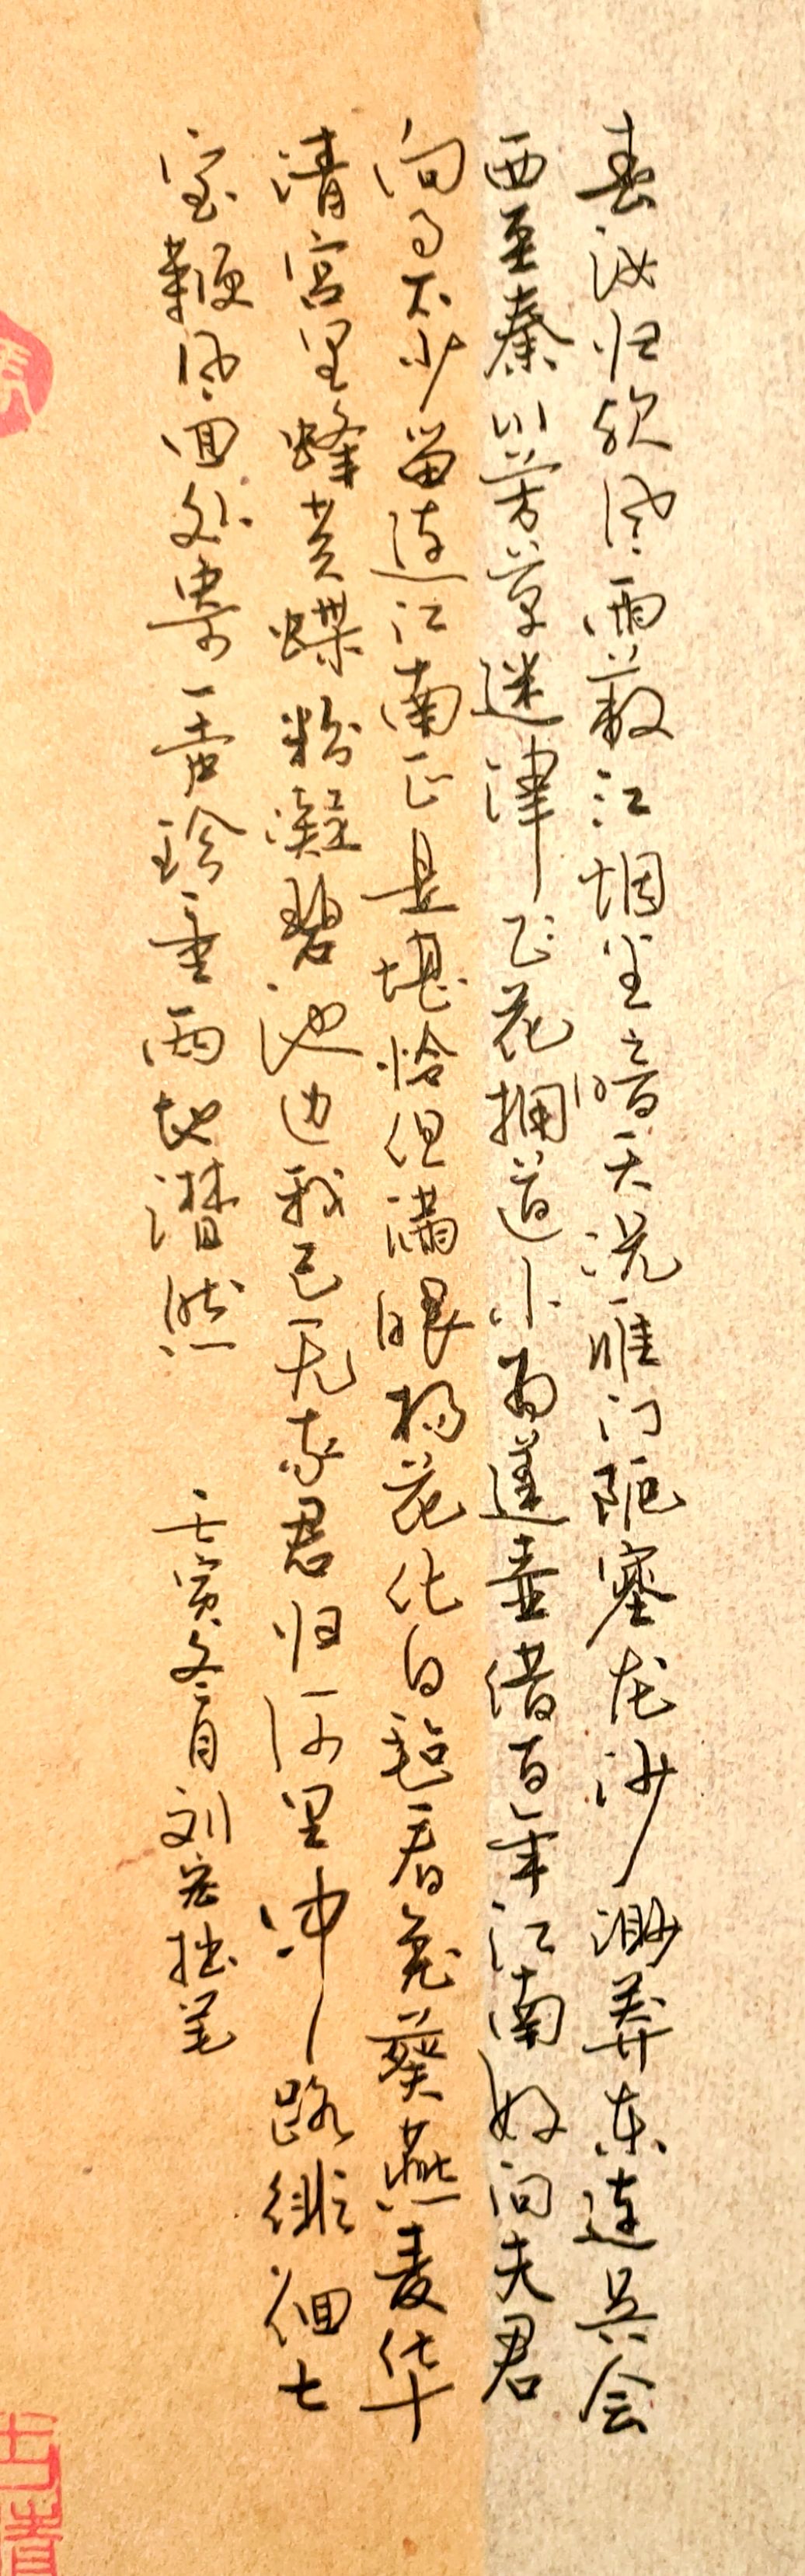 春汝归欤风雨蔽江烟尘暗天况雁门阨塞龙沙渺莽东连吴会
西至秦川芳草迷津飞花拥道小为蓬壶借百年江南好问夫君
何事不少留连江南正是堪怜但满眼杨花化白毡看兔葵燕麦华
清宫里蜂黄蝶粉凝碧池边我已无家君归何里中路徘徊七
宝鞭风回处寄一声珍重两地潸然
壬寅冬月刘宏拙笔